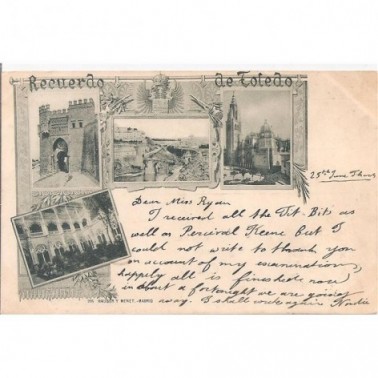 Recuerdo de Toledo
25th June
Dear Miss Ryan
I received all the Tit-Bits as
well as Percival Keene but I
could not write to thank you
on account of my examinations,
happily all is finished now
in about a fortnight we are going
away. I shall write again
HAUSER Y MENET.-MADRID